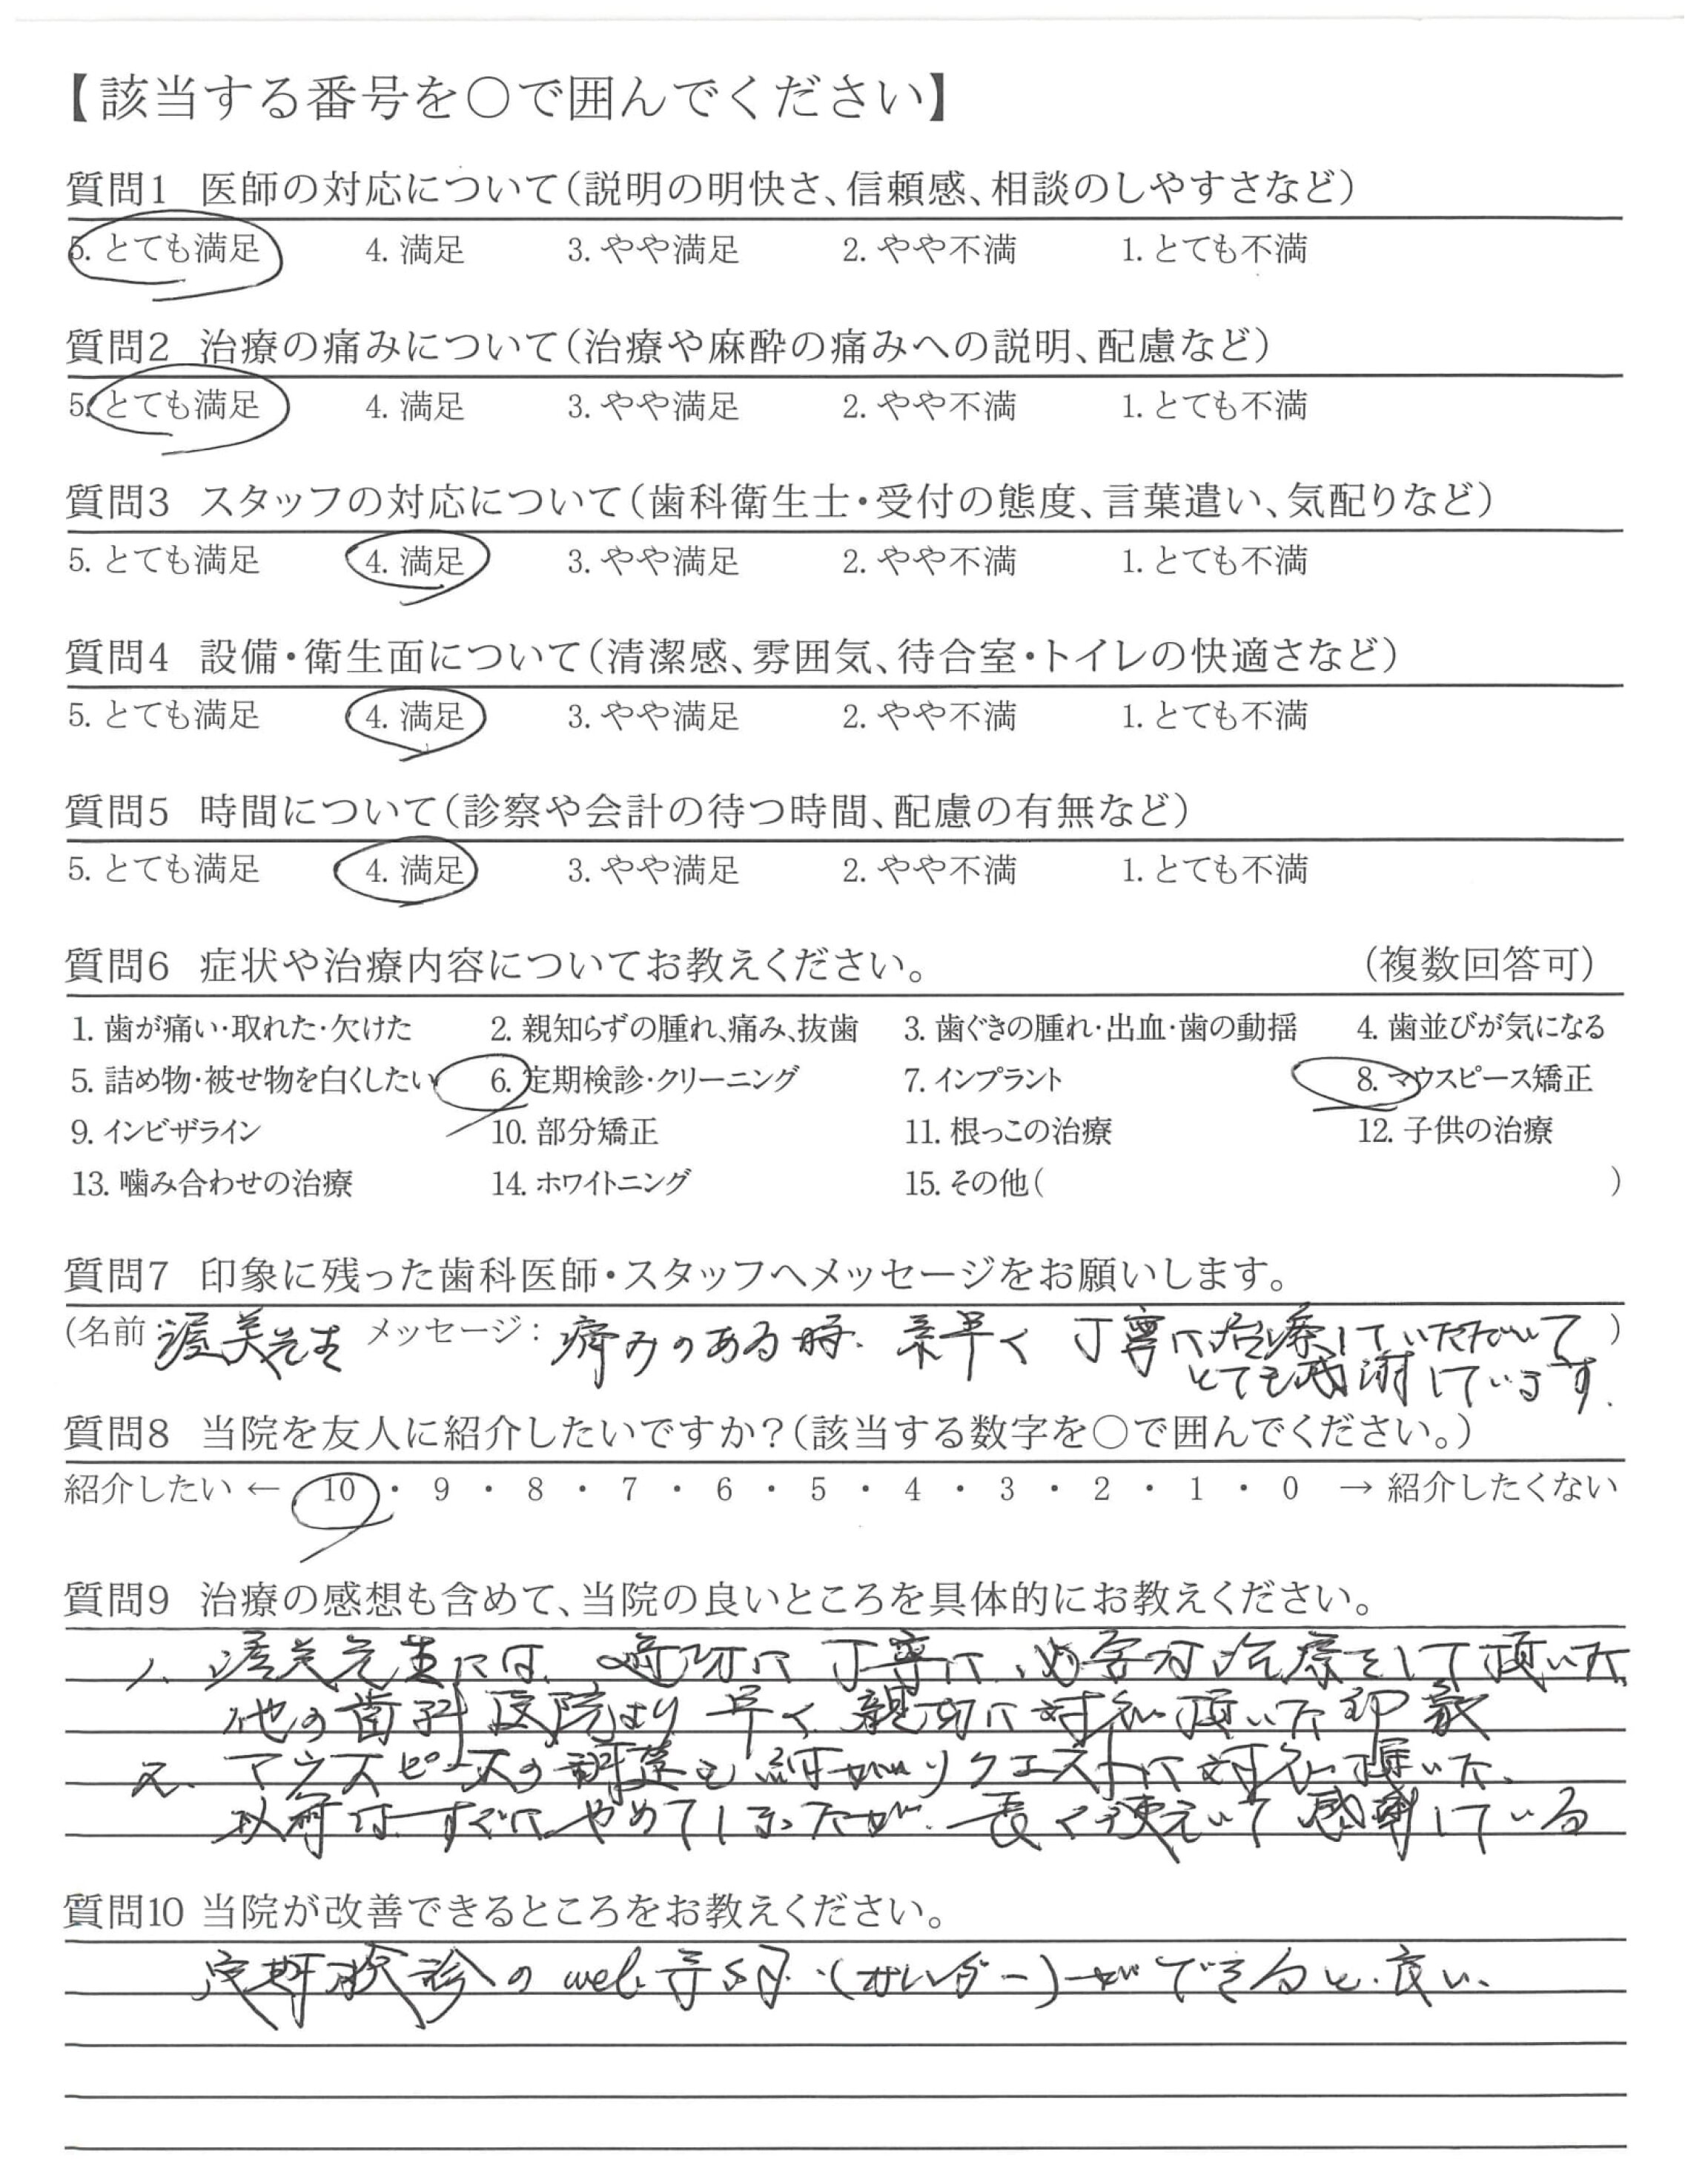 【該当する番号を〇で囲んでください】
質問1 医師の対応について(説明の明快さ、信頼感、相談のしやすさなど)
5. とても満足 4. 満足 3. やや満足 2. やや不満 1. とても不満
質問2 治療の痛みについて(治療や麻酔の痛みへの説明、配慮など)
5. とても満足 4. 満足 3. やや満足 2. やや不満 1. とても不満
質問3 スタッフの対応について(歯科衛生士・受付の態度、言葉遣い、気配りなど)
5. とても満足 4. 満足 3. やや満足 2. やや不満 1. とても不満
質問4 設備・衛生面について(清潔感、雰囲気、待合室・トイレの快適さなど)
5. とても満足 4. 満足 3. やや満足 2. やや不満 1. とても不満
質問5 時間について(診察や会計の待つ時間、配慮の有無など)
5. とても満足 4. 満足 3. やや満足 2. やや不満 1. とても不満
質問6 症状や治療内容についてお教えください。 (複数回答可)
1. 歯が痛い・取れた・欠けた 2. 親知らずの腫れ、痛み、抜歯 3. 歯ぐきの腫れ・出血・歯の動揺 4. 歯並びが気になる
5. 詰め物・被せ物を白くしたい 6. 定期検診・クリーニング 7. インプラント 8. マウスピース矯正
9. インビザライン 10. 部分矯正 11. 根っこの治療 12. 子供の治療
13. 噛み合わせの治療 14. ホワイトニング 15. その他( )
質問7 印象に残った歯科医師・スタッフへメッセージをお願いします。
(名前:渥美先生 メッセージ: 痛みのある時、素早く 丁寧に治療していただいて )
とても感謝しています.
質問8 当院を友人に紹介したいですか?(該当する数字を〇で囲んでください。)
紹介したい ← 10 ・ 9 ・ 8 ・ 7 ・ 6 ・ 5 ・ 4 ・ 3 ・ 2 ・ 1 ・ 0 → 紹介したくない
質問9 治療の感想も含めて、当院の良いところを具体的にお教えください。
1. 渥美先生には、適切に 丁寧に、必要な治療をして頂いた
他の歯科医院より 早く 親切に対応頂いた印象
2. マウスピースの調整も 細かいリクエストに対応頂いた.
以前は すぐに やめてしまったが、長く使えいて 感謝している
質問10 当院が改善できるところをお教えください。
定期検診の web予約 (カレンダー)ができると良い、